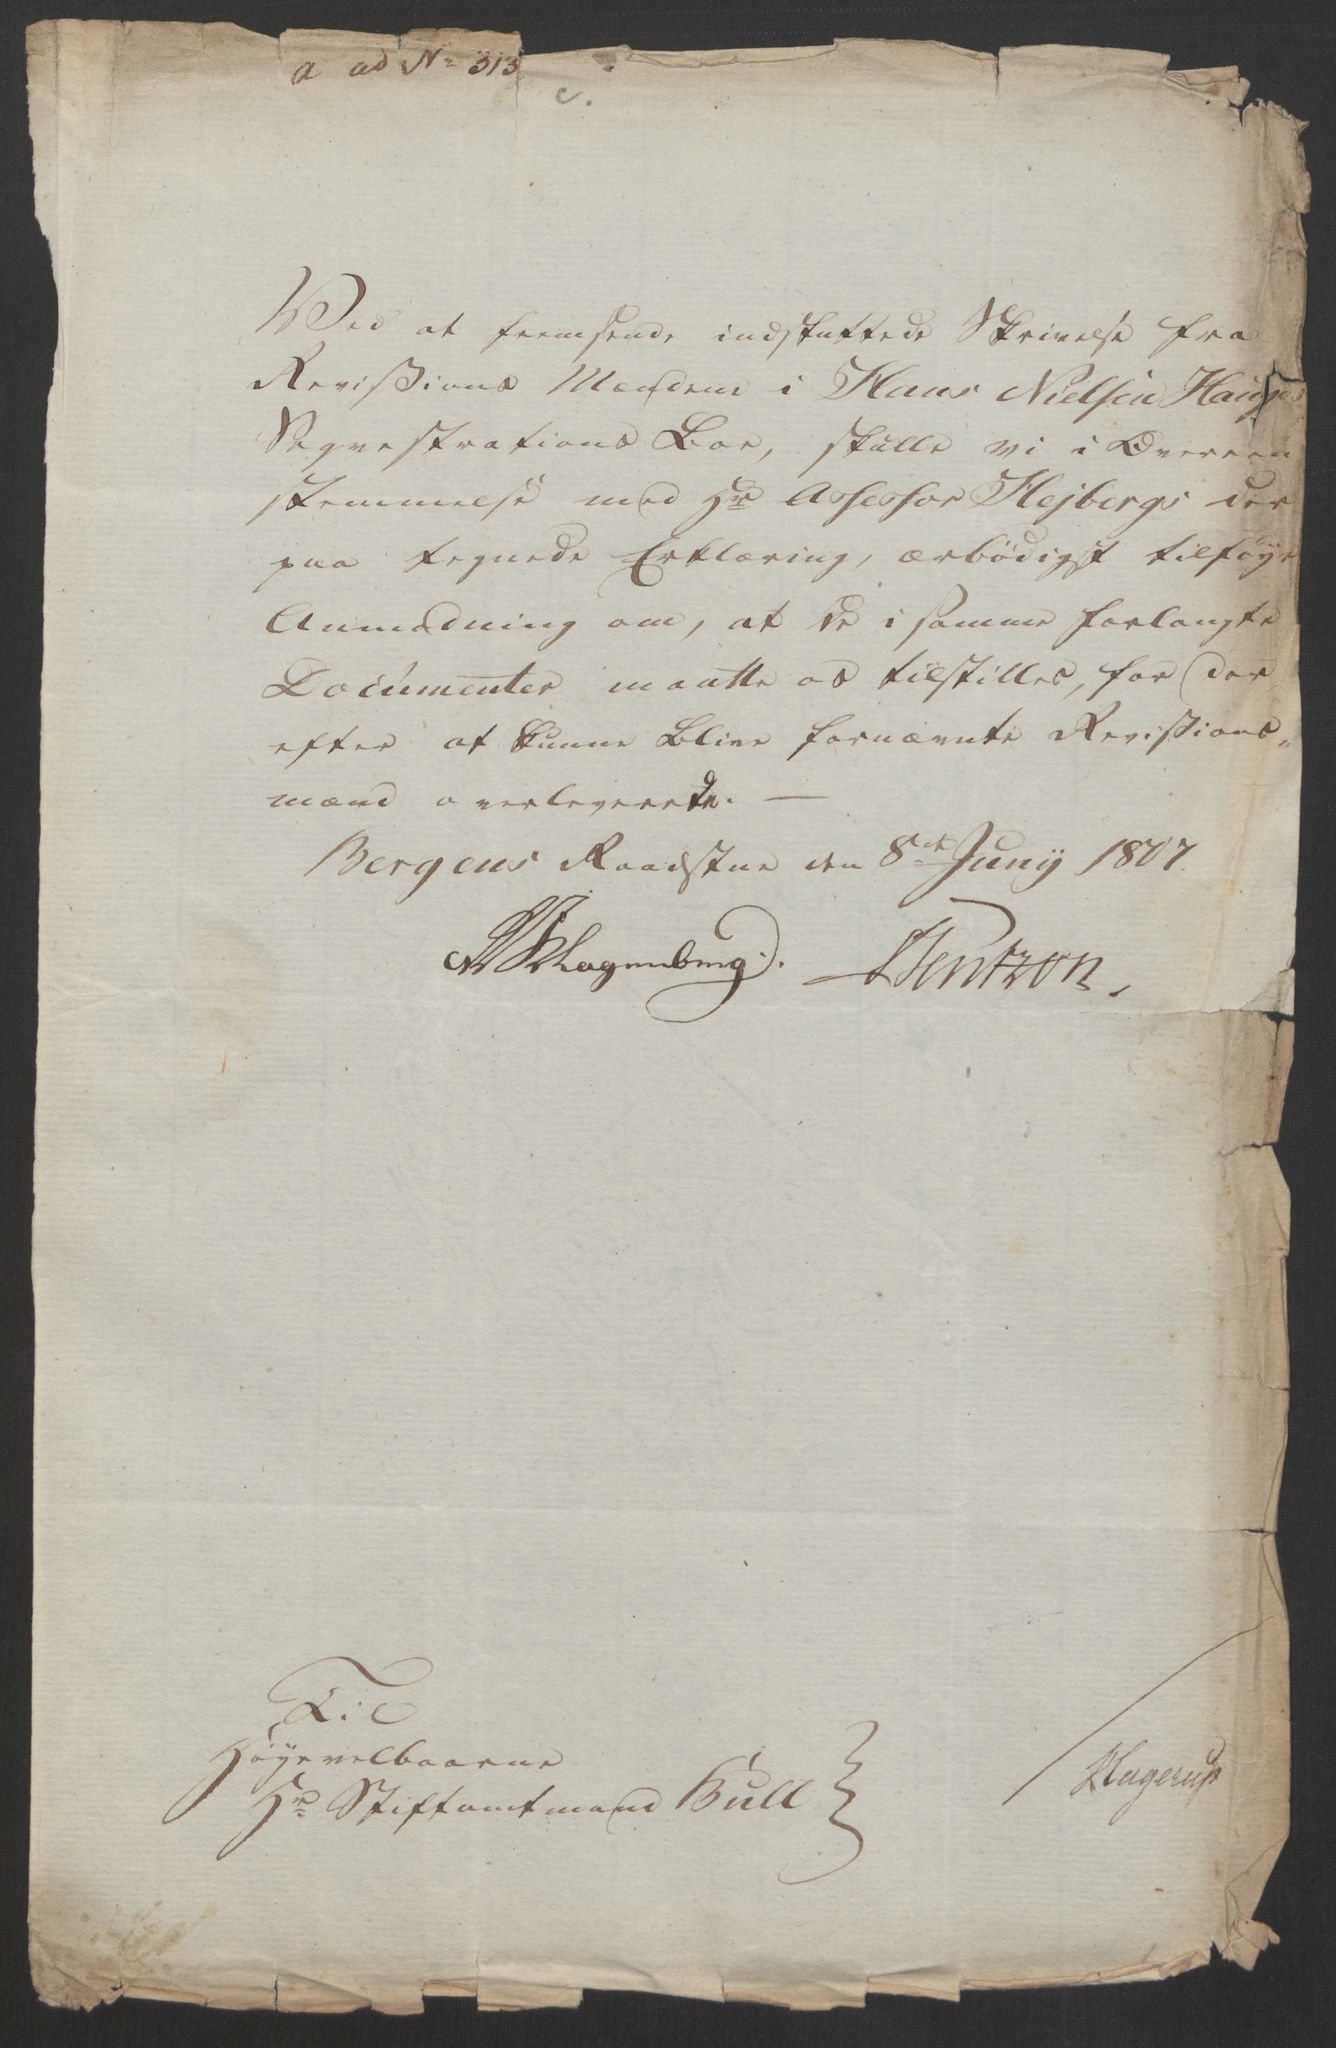 a ad No 313
c.
Ved at fremsende indsluttede Skrivelse fra
Revisions Mændene i Hans Nielsen Hauges
Seqvestrations Boe, skulle vi i Overeen
stemmelse med Hr Assessor Hejbergs der
paa tegnede Erklæring, ærbödigst tilföye
Anmodning om, at de i samme forlangte
Documenter maatte os tilstilles, for der
efter at kunne blive fornævnte Revisions-
mænd overleverede. —
Bergens Raadstue den 8de Juny 1807.
Hagenberg. Hentzon,
Til
Höyvelbaarne
Hr Stiftamtmand Bull
Hagerup